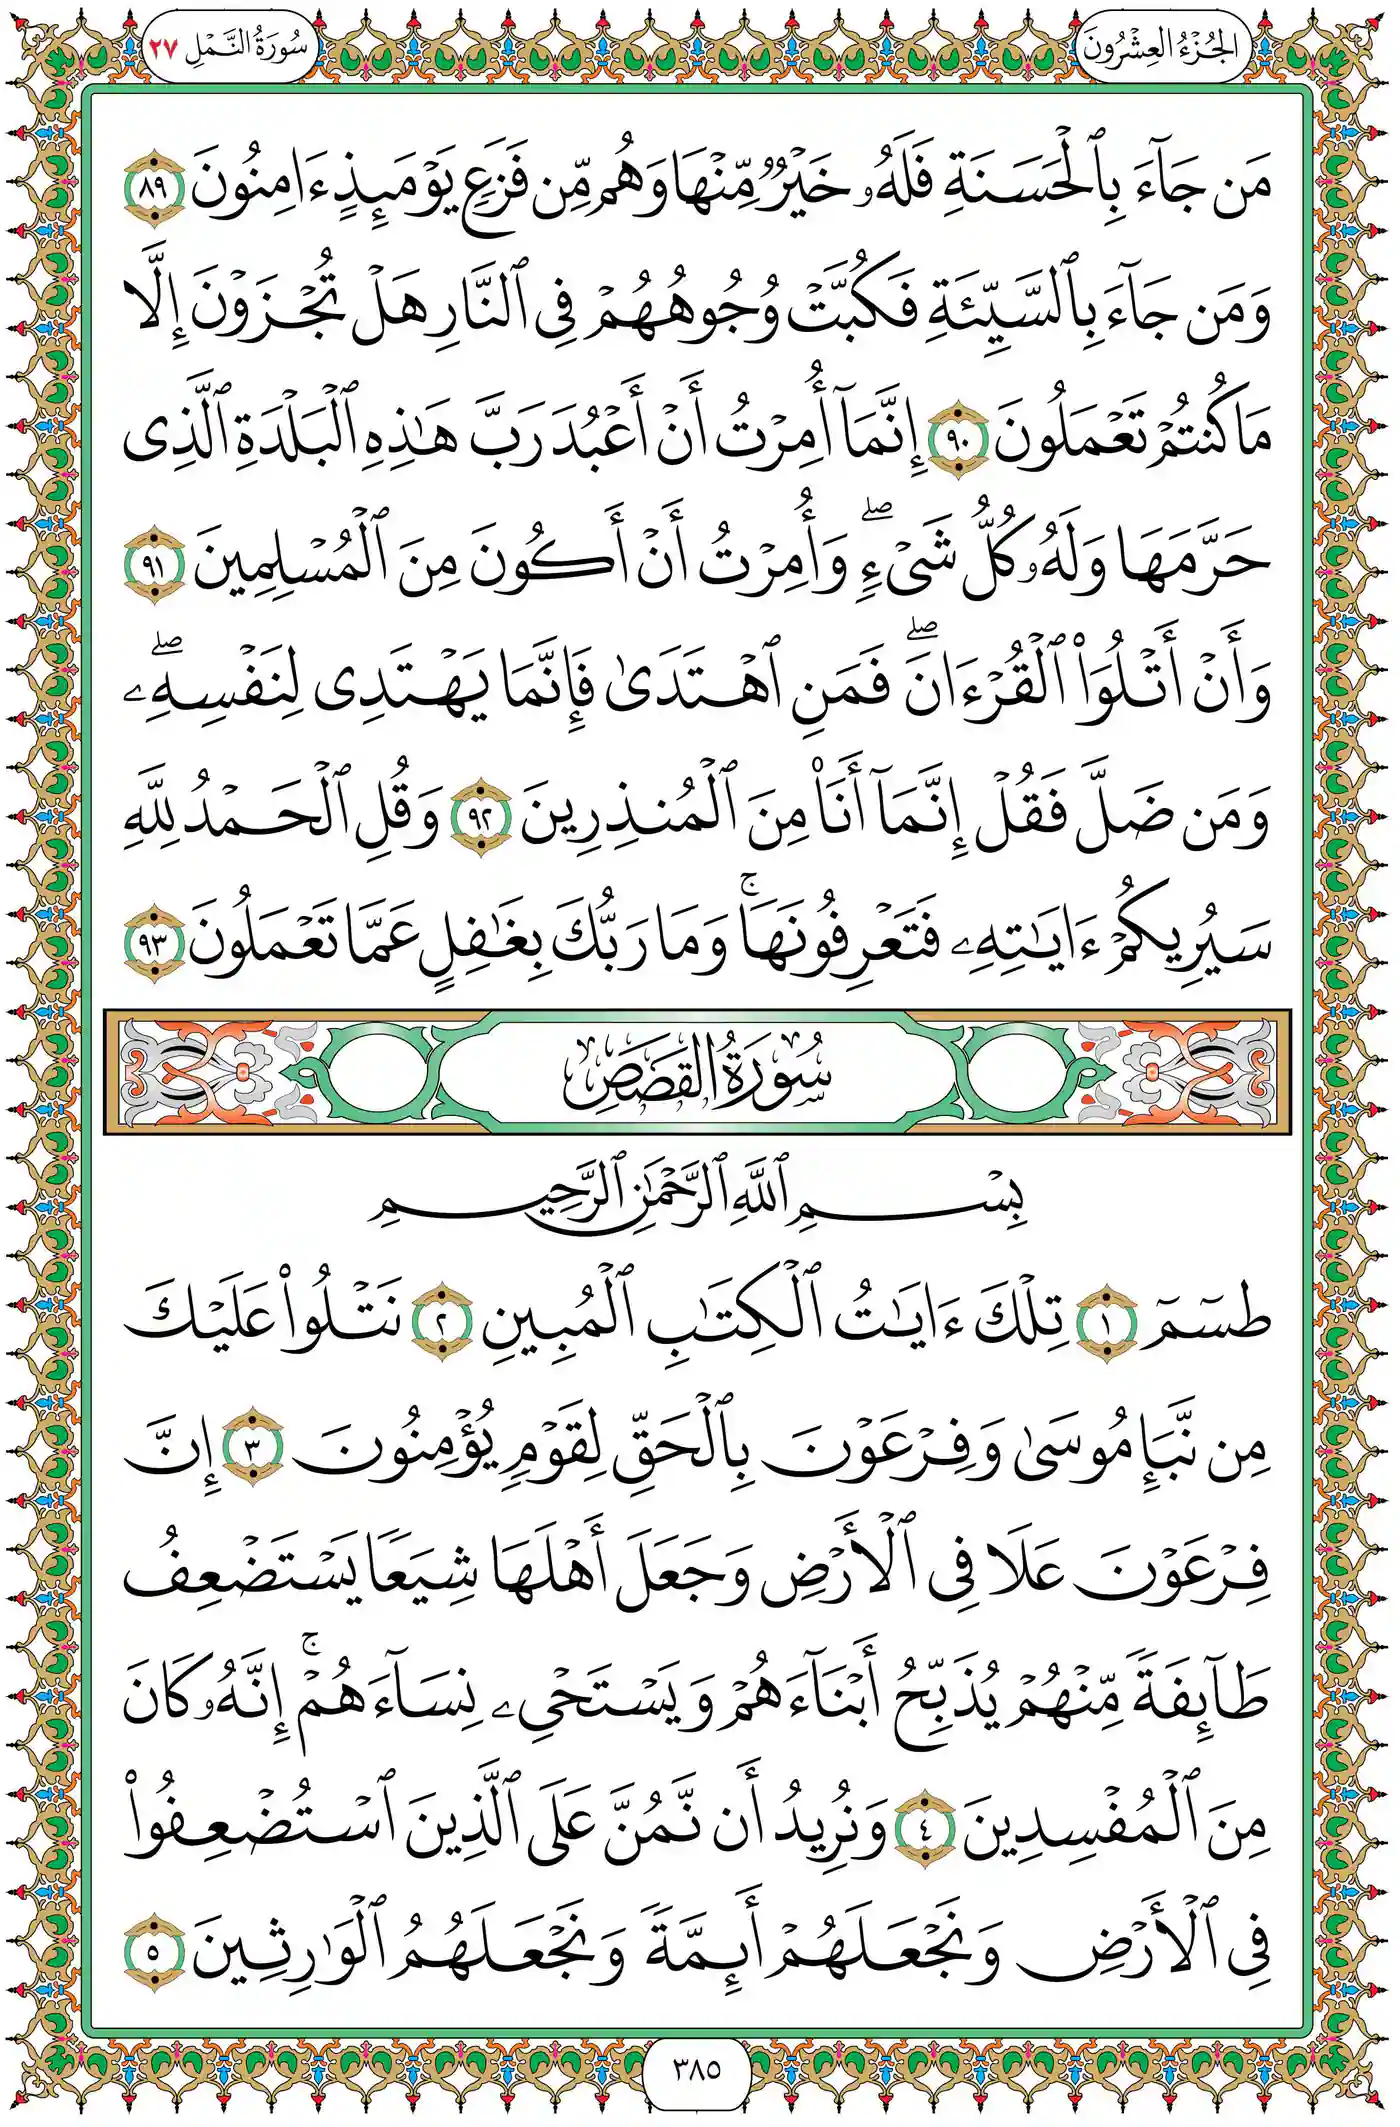 الجُزْءُ العِشْرُونَ
سُورَةُ النَّمْلِ ٢٧
مَن جَآءَ بِٱلْحَسَنَةِ فَلَهُۥ خَيْرٌ مِّنْهَا وَهُم مِّن فَزَعٍ يَوْمَئِذٍ ءَامِنُونَ ٨٩
وَمَن جَآءَ بِٱلسَّيِّئَةِ فَكُبَّتْ وُجُوهُهُمْ فِى ٱلنَّارِ هَلْ تُجْزَوْنَ إِلَّا
مَا كُنتُمْ تَعْمَلُونَ ٩٠ إِنَّمَآ أُمِرْتُ أَنْ أَعْبُدَ رَبَّ هَٰذِهِ ٱلْبَلْدَةِ ٱلَّذِى
حَرَّمَهَا وَلَهُۥ كُلُّ شَىْءٍۖ وَأُمِرْتُ أَنْ أَكُونَ مِنَ ٱلْمُسْلِمِينَ ٩١
وَأَنْ أَتْلُوَا۟ ٱلْقُرْءَانَۖ فَمَنِ ٱهْتَدَىٰ فَإِنَّمَا يَهْتَدِى لِنَفْسِهِۦۖ
وَمَن ضَلَّ فَقُلْ إِنَّمَآ أَنَا۠ مِنَ ٱلْمُنذِرِينَ ٩٢ وَقُلِ ٱلْحَمْدُ لِلَّهِ
سَيُرِيكُمْ ءَايَٰتِهِۦ فَتَعْرِفُونَهَاۚ وَمَا رَبُّكَ بِغَٰفِلٍ عَمَّا تَعْمَلُونَ ٩٣
سُورَةُ القَصَصِ
بِسْمِ ٱللَّهِ ٱلرَّحْمَٰنِ ٱلرَّحِيمِ
طسٓمٓ ١ تِلْكَ ءَايَٰتُ ٱلْكِتَٰبِ ٱلْمُبِينِ ٢ نَتْلُوا۟ عَلَيْكَ
مِن نَّبَإِ مُوسَىٰ وَفِرْعَوْنَ بِٱلْحَقِّ لِقَوْمٍ يُؤْمِنُونَ ٣ إِنَّ
فِرْعَوْنَ عَلَا فِى ٱلْأَرْضِ وَجَعَلَ أَهْلَهَا شِيَعًا يَسْتَضْعِفُ
طَآئِفَةً مِّنْهُمْ يُذَبِّحُ أَبْنَآءَهُمْ وَيَسْتَحْىِۦ نِسَآءَهُمْۚ إِنَّهُۥ كَانَ
مِنَ ٱلْمُفْسِدِينَ ٤ وَنُرِيدُ أَن نَّمُنَّ عَلَى ٱلَّذِينَ ٱسْتُضْعِفُوا۟
فِى ٱلْأَرْضِ وَنَجْعَلَهُمْ أَئِمَّةً وَنَجْعَلَهُمُ ٱلْوَٰرِثِينَ ٥
٣٨٥